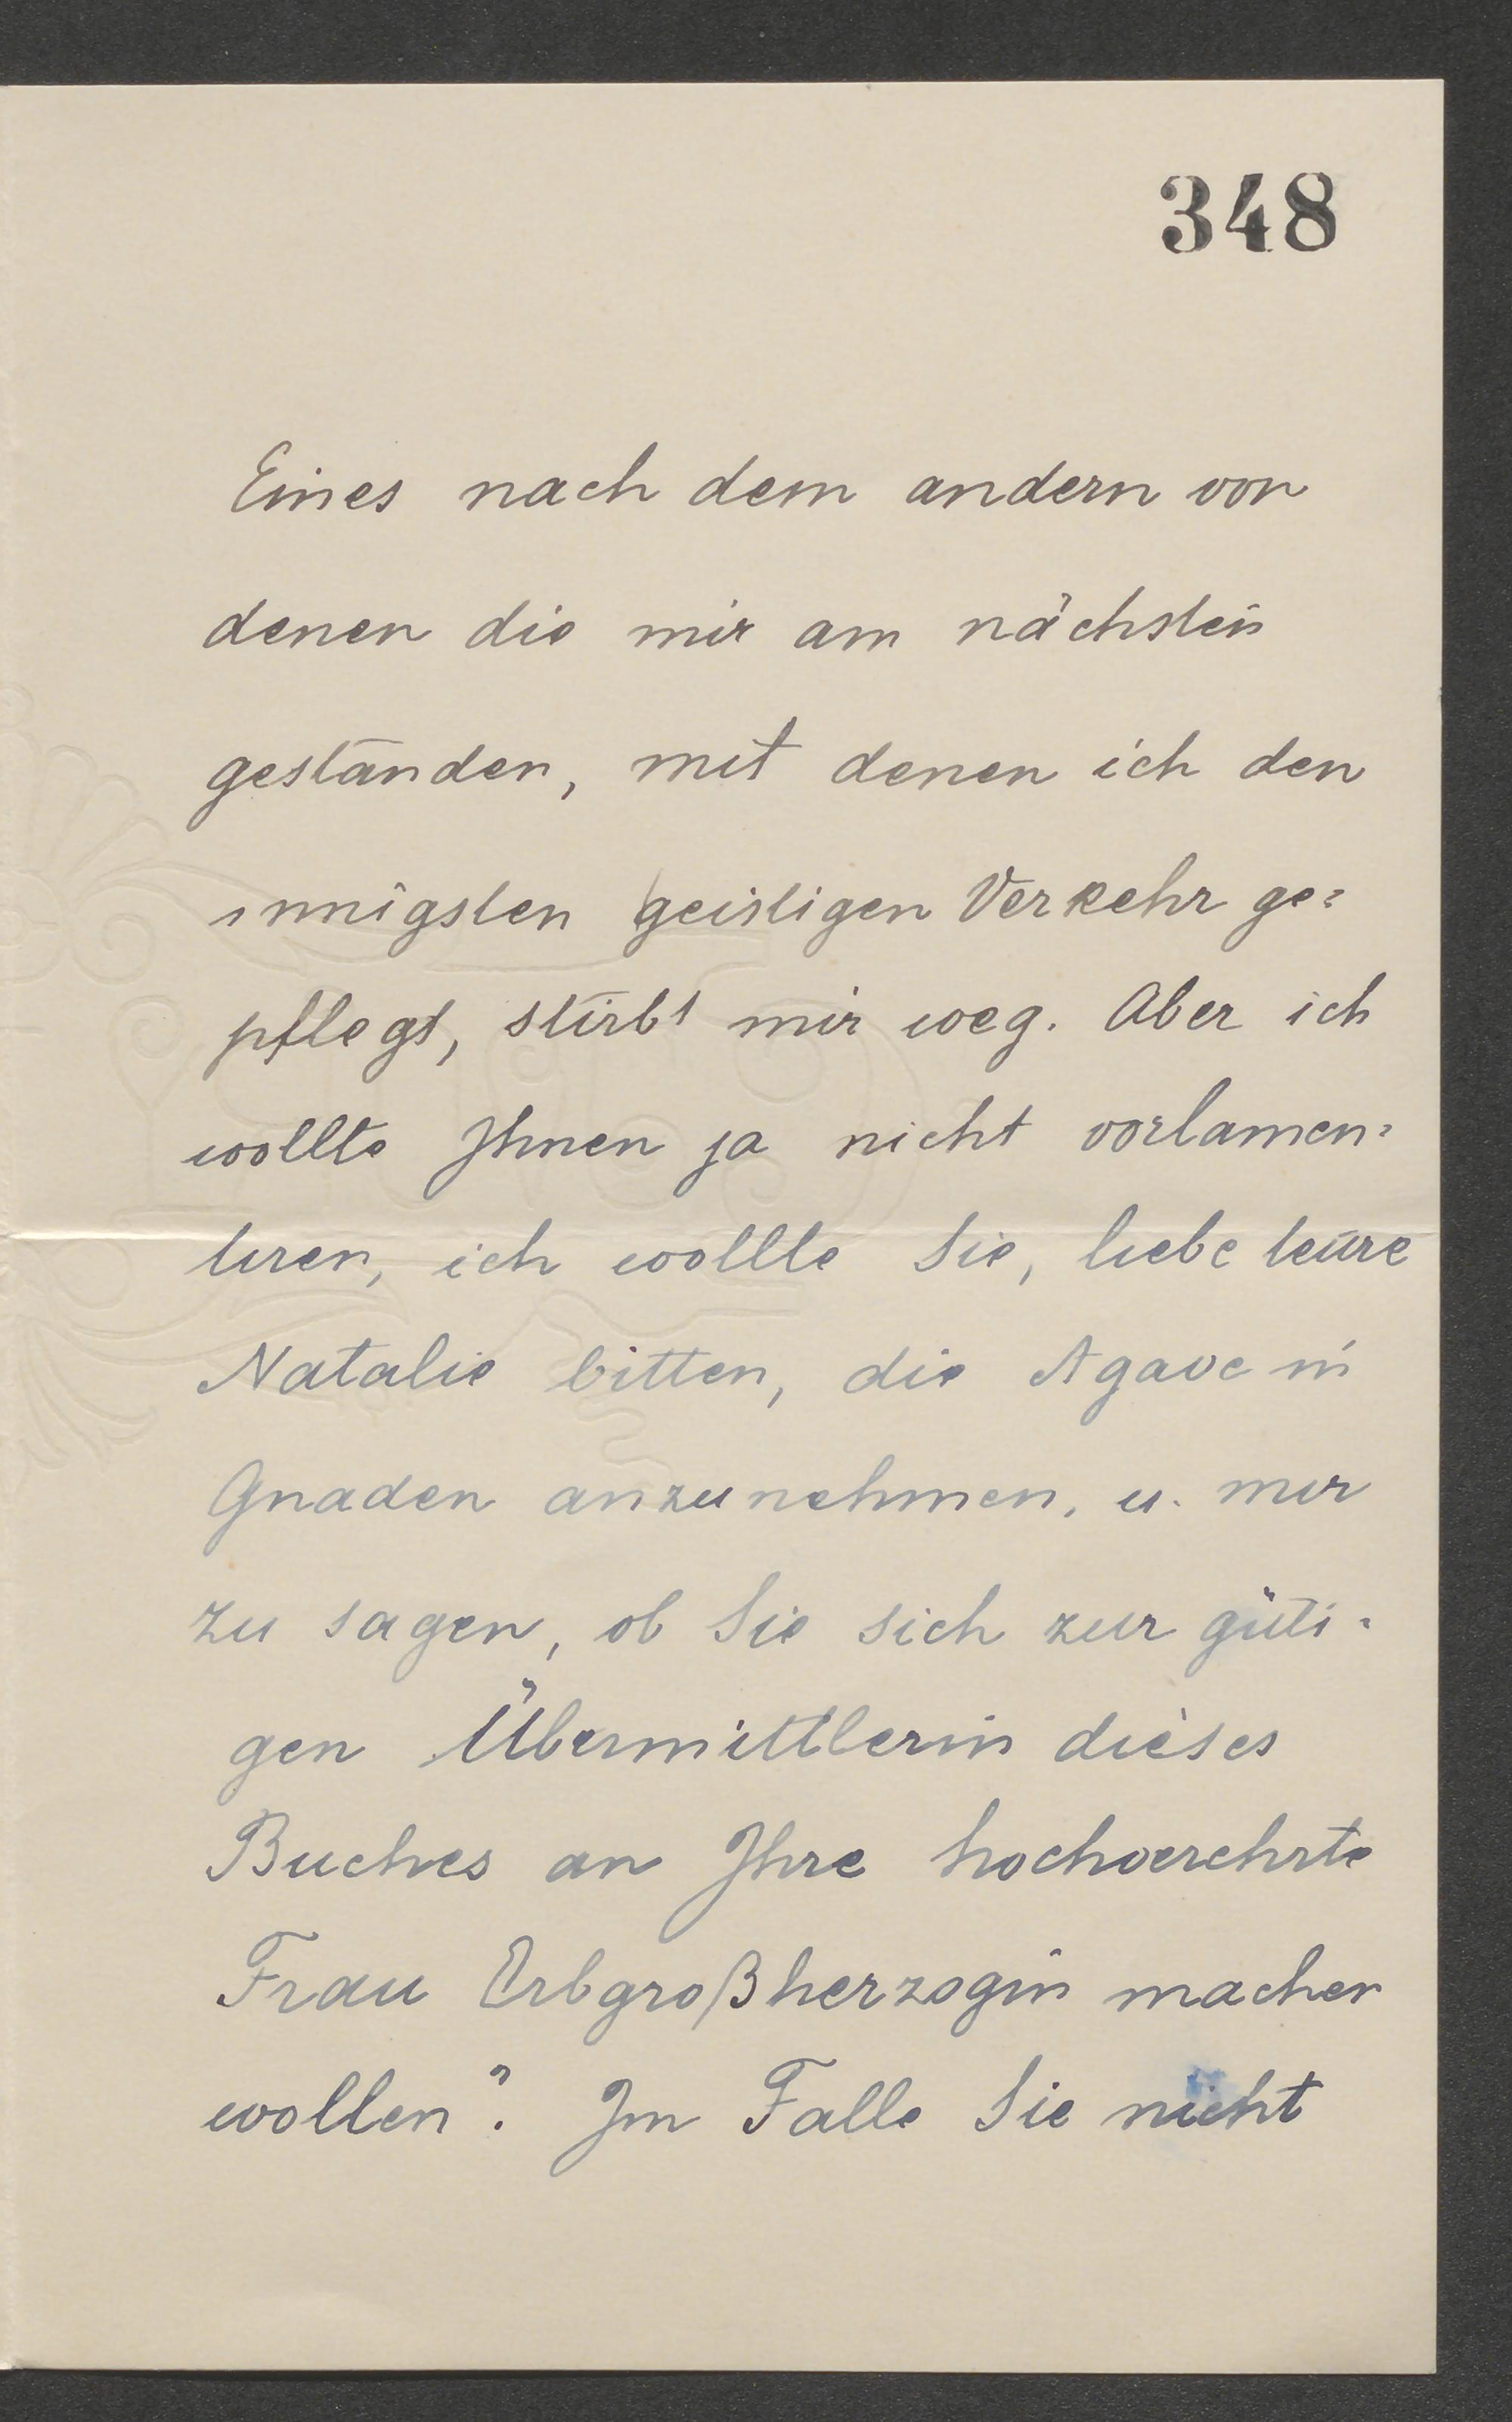 348
Eines nach dem andern von
denen die mir am nächsten
gestanden, mit denen ich den
innigsten geistigen Verkehr ge=
pflegt, stirbt mir weg. Aber ich
wollte Ihnen ja nicht vorlamen=
tiren, ich wollte Sie, liebe teure
Natalie bitten, die Agave in
Gnaden anzunehmen, u. mir
zu sagen, ob Sie sich zur güti=
gen Übermittlerin dieses
Buches an Ihre hochverehrte
Frau Erbgroßherzogin machen
wollen? Im Falle Sie nicht